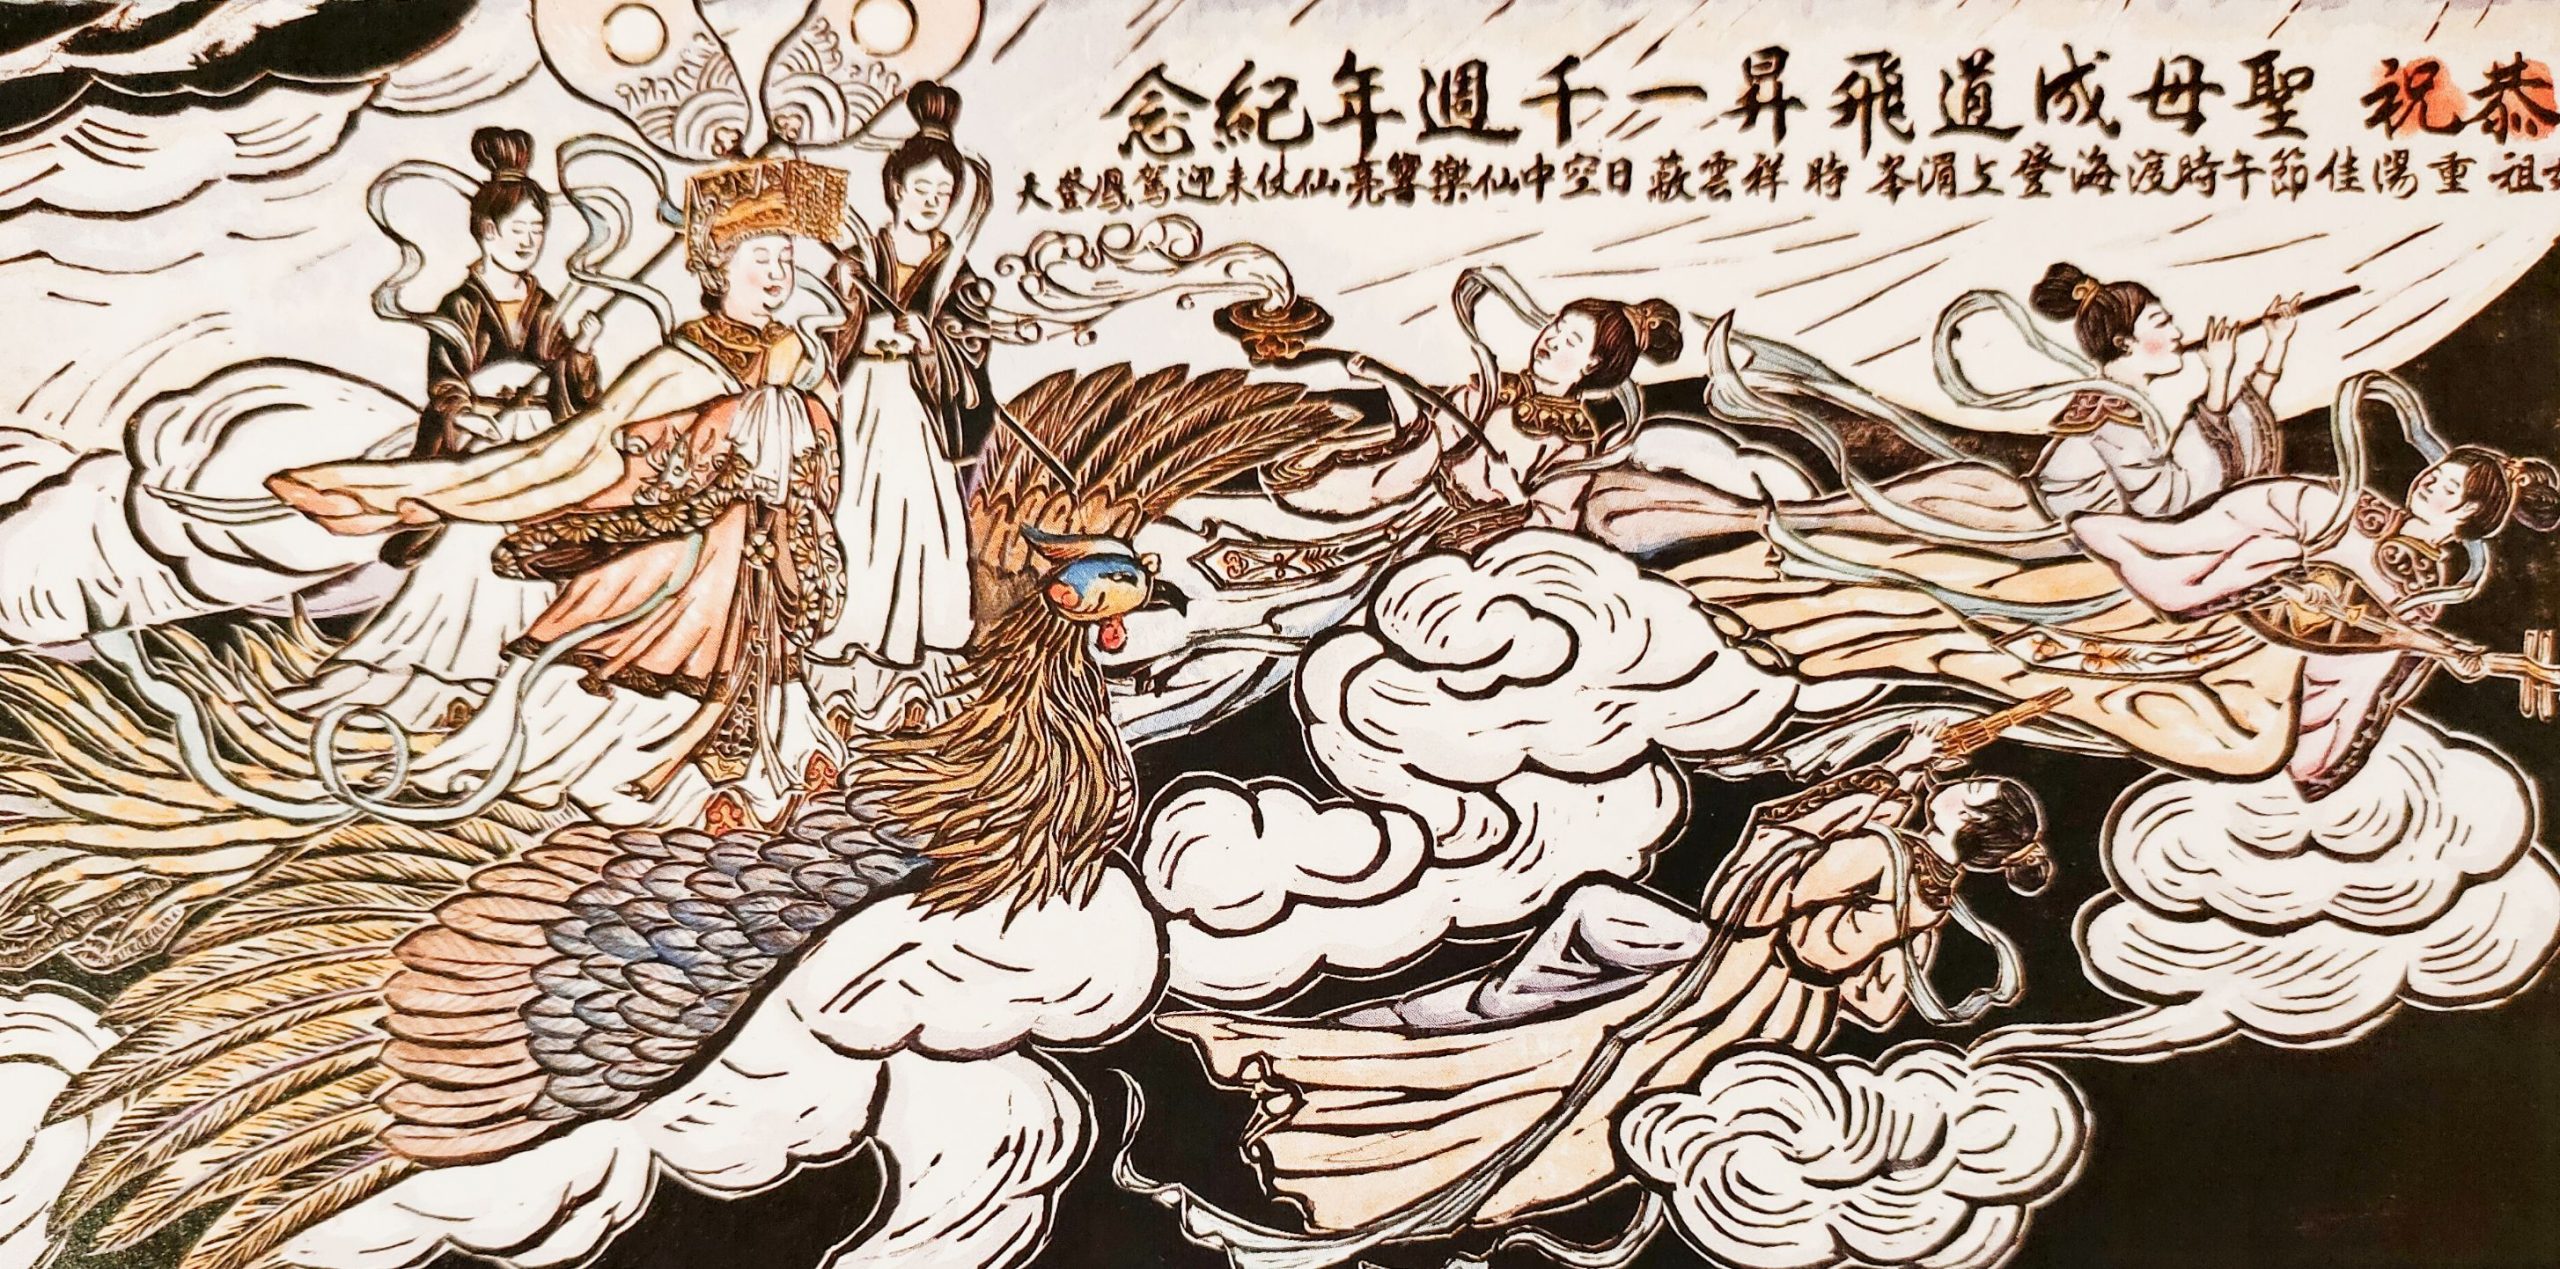 恭祝 聖母成道飛昇一千週年紀念
祖 重陽佳節午時渡海登上湄峯時 祥雲蔽日空中仙樂響亮仙仗来迎駕鳳登天